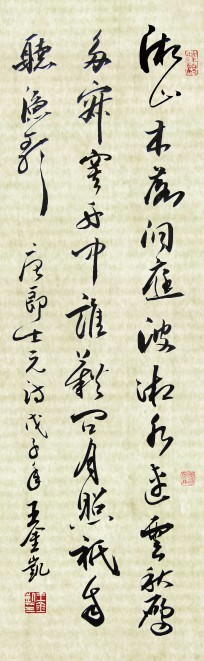 湘山木落洞庭波湘水連雲秋雁
多寂寞舟中誰藉問月照祇自
聽漁歌
唐郎士元詩戊子年王金凱